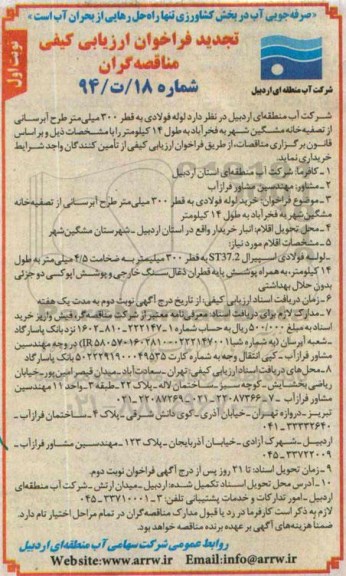 «صرفه‌جویی آب در بخش کشاورزی تنها راه‌حل رهایی از بحران آب است»
نوبت اول
تجدید فراخوان ارزیابی کیفی
مناقصه‌گران
شماره ۱۸/ت/۹۴
شرکت آب منطقه‌ای اردبیل
شرکت آب منطقه‌ای اردبیل در نظر دارد لوله فولادی به قطر ۳۰۰ میلی‌متر طرح آبرسانی
از تصفیه‌خانه مشگین شهر به فخرآباد به طول ۱۴ کیلومتر را با مشخصات ذیل و بر اساس
قانون برگزاری مناقصات، از طریق فراخوان ارزیابی کیفی از تأمین کنندگان واجد شرایط
خریداری نماید.
۱ـ کارفرما: شرکت آب منطقه‌ای استان اردبیل
۲ـ مشاور: مهندسین مشاور فرازآب
۳ـ موضوع فراخوان: خرید لوله فولادی به قطر ۳۰۰ میلی‌متر طرح آبرسانی از تصفیه‌خانه
مشگین‌شهر به فخرآباد به طول ۱۴ کیلومتر
۴ـ محل تحویل اقلام: انبار خریدار واقع در استان اردبیل ـ شهرستان مشگین‌شهر
۵ـ مشخصات اقلام مورد نیاز:
ـ لوله فولادی اسپیرال ST37.2 به قطر ۳۰۰ میلیمتر به ضخامت ۴/۵ میلی‌متر به طول
۱۴ کیلومتر، به همراه پوشش پایه قطران ذغال‌سنگ خارجی و پوشش اپوکسی دو جزئی
بدون حلال بهداشتی
۶ـ زمان دریافت اسناد ارزیابی کیفی: از تاریخ درج آگهی نوبت دوم به مدت یک هفته
۷ـ مدارک لازم برای دریافت اسناد: معرفی‌نامه معتبر از شرکت مناقصه‌گر، فیش واریز خرید
اسناد به مبلغ ۵۰۰/۰۰۰ ریال به حساب شماره ۱ـ۲۲۲۱۴۷ـ۸۱۰ـ۱۶۰۲ نزد بانک پاسارگاد
ـ شعبه آبرسان (به شماره شبا در وجه مهندسین
مشاور فرازآب ـ کپی انتقال وجه به شماره کارت بانک پاسارگاد
۸ـ محل‌های دریافت اسناد ارزیابی کیفی: تهران ـ سعادت‌آباد ـ میدان قیصر امین‌پور ـ خیابان
ریاضی بخشایش ـ کوچه سبز ـ ساختمان لاله ـ پلاک ۲۲ ـ طبقه ۳ ـ واحد ۱۱ مهندسین
مشاور فرازآب ـ ۷ـ۲۲۰۸۷۳۶۶ـ۰۲۱ ، ۲۲۰۸۷۲۶۹ـ۰۲۱
تبریز ـ دروازه تهران ـ خیابان آذری ـ کوی دانش شرقی ـ پلاک ۴ ـ ساختمان فرازآب ـ
۳۳۳۲۶۴۰ـ۰۴۱
اردبیل ـ شهرک آزادی ـ خیابان آذربایجان ـ پلاک ۱۲۳ ـ مهندسین مشاور فرازآب ـ
۳۳۷۲۲۰۰۹ـ۰۴۵
۹ـ زمان تحویل اسناد: تا ۲۱ روز پس از درج آگهی فراخوان نوبت دوم.
۱۰ـ آدرس محل تحویل اسناد تکمیل شده: اردبیل ـ میدان ارتش ـ شرکت آب منطقه‌ای
اردبیل ـ امور تدارکات و خدمات پشتیبانی تلفن: ۳ـ۳۳۷۱۰۰۰۱ـ۰۴۵
لازم به ذکر است کارفرما در رد یا قبول مدارک مناقصه‌گران در تمام مراحل اختیار تام دارد.
ضمناً هزینه‌های آگهی بر عهده برنده مناقصه خواهد بود.
روابط عمومی شرکت سهامی آب منطقه‌ای اردبیل
Website:www.arrw.ir Email:info@arrw.ir